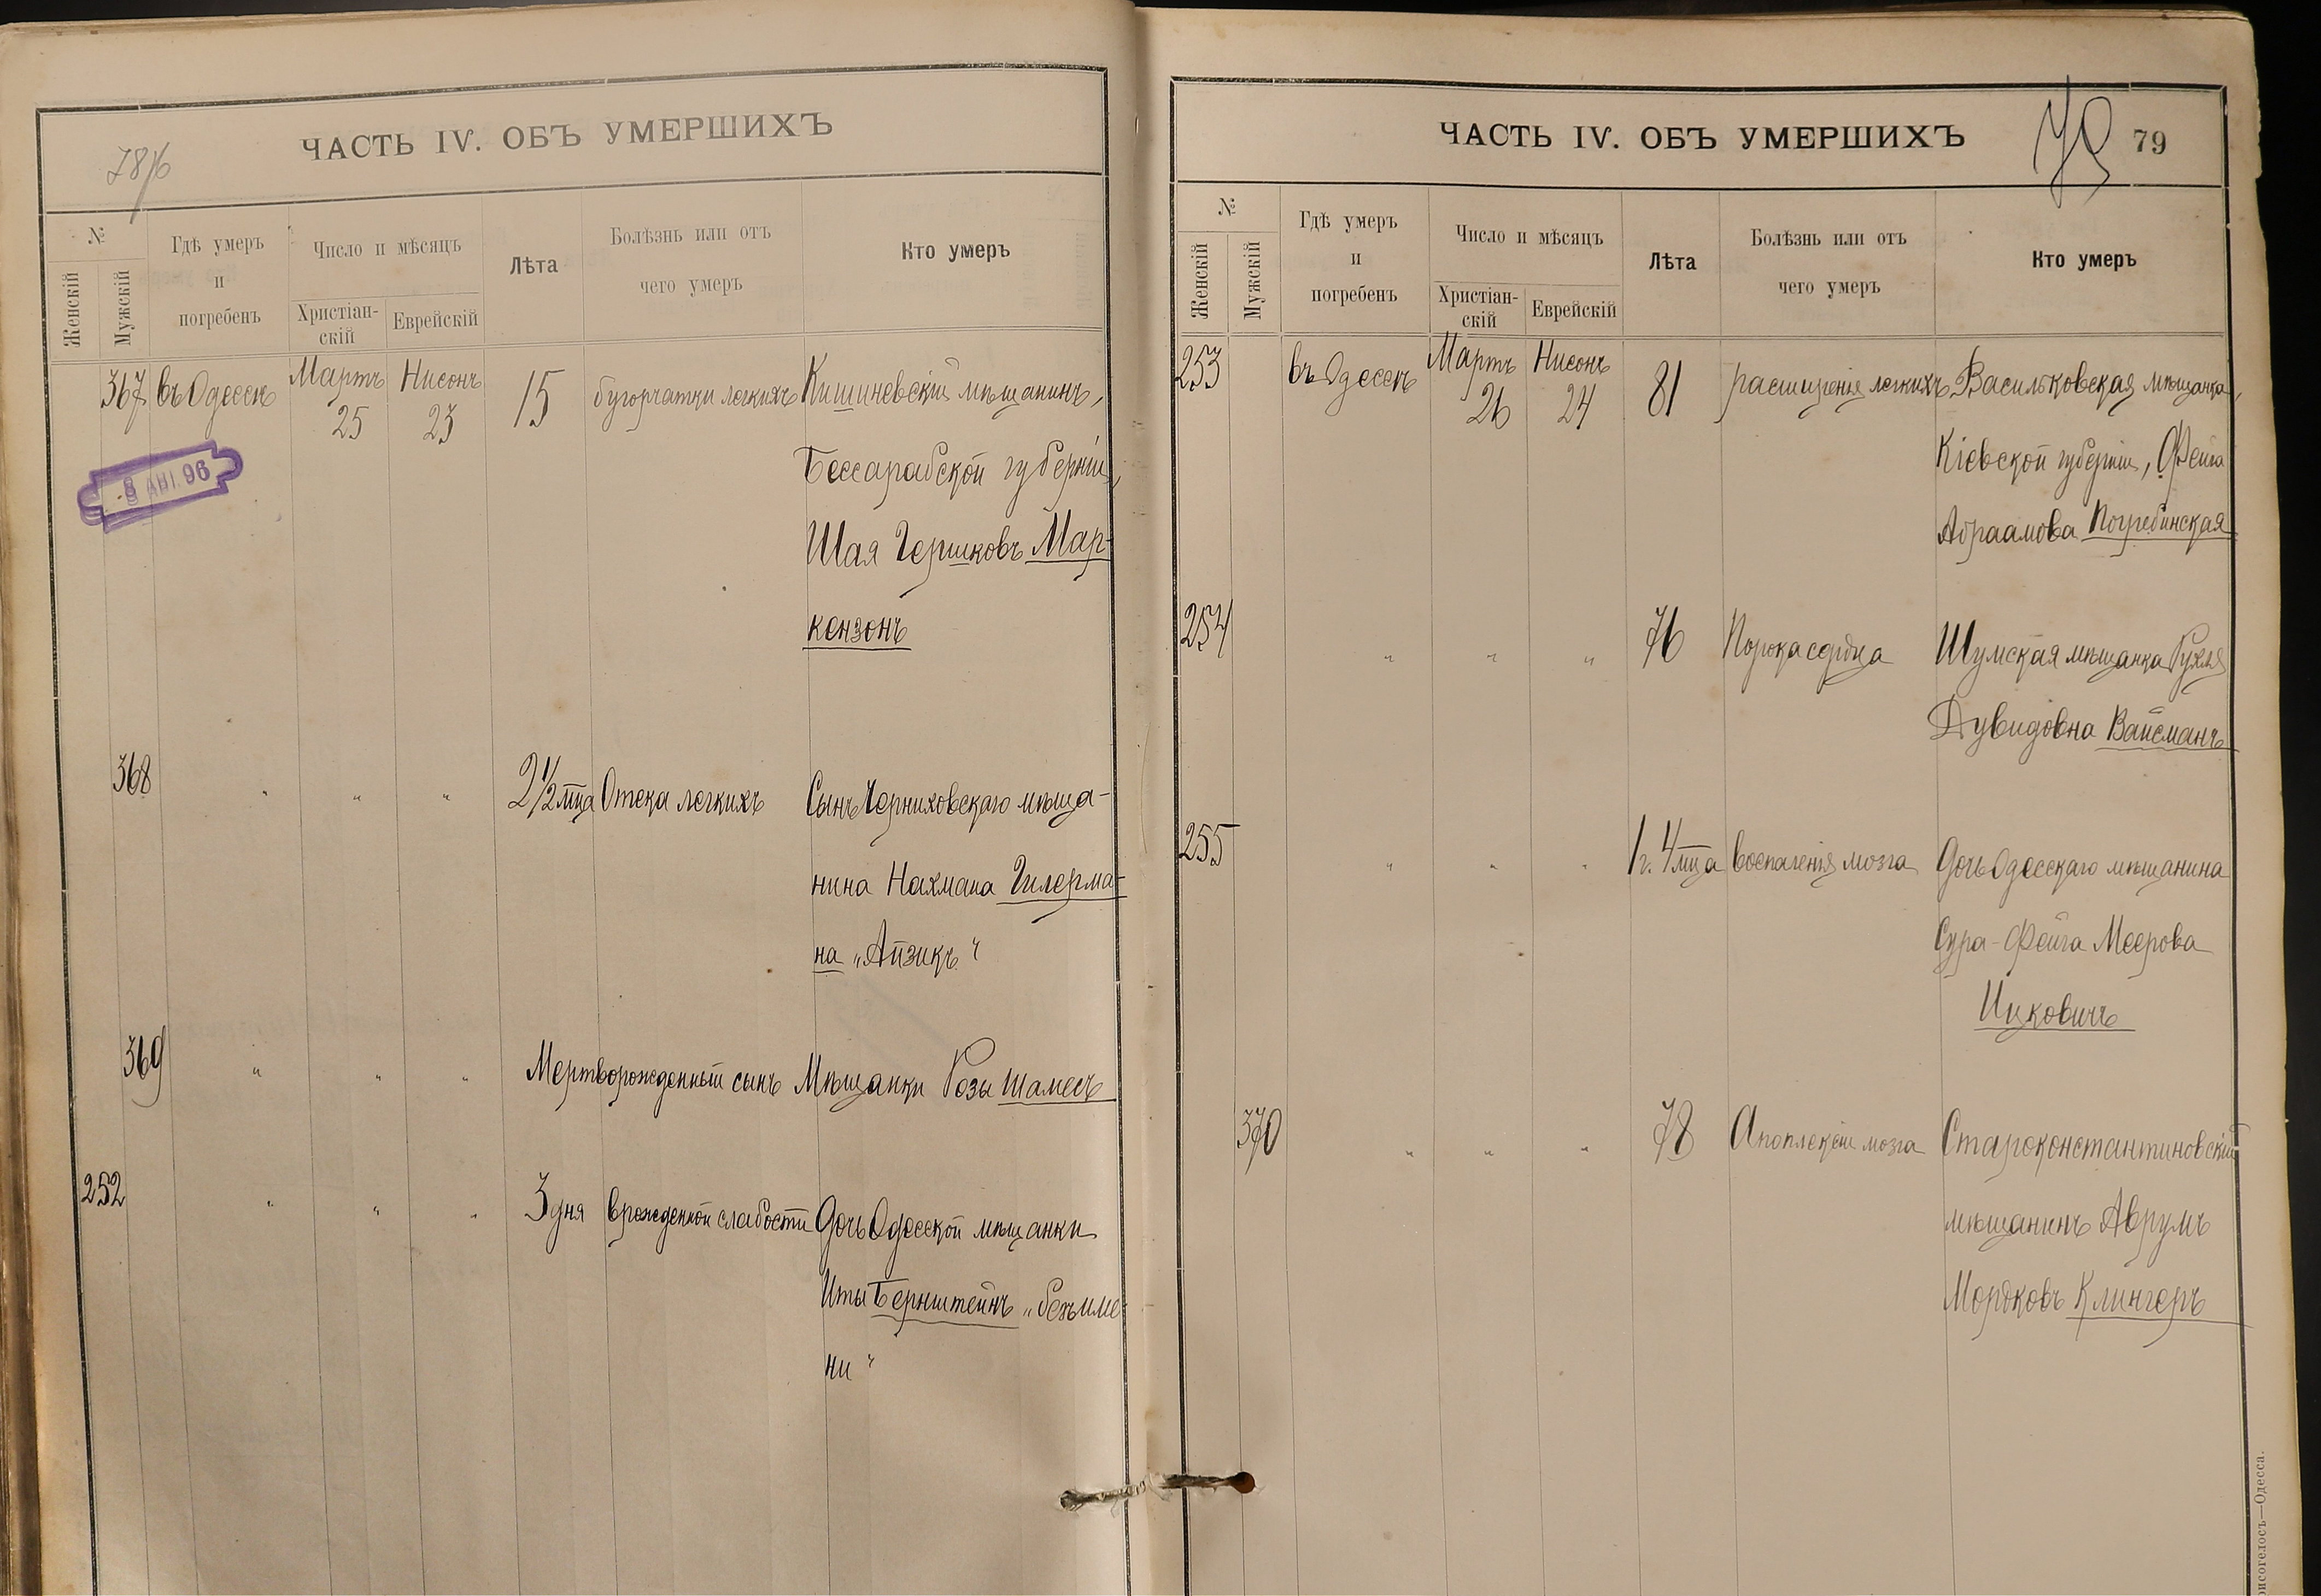 78об
ЧАСТЬ IV. ОБЪ УМЕРШИХЪ
№
Женскій
Мужскій
Гдѣ умеръ
и
погребенъ
Число и мѣсяцъ
Христіан-
скій
Еврейскій
Лѣта
Болѣзнь или отъ
чего умеръ
Кто умеръ
367 въ Одессѣ Мартъ 25 Нисонъ 23 15 бугорчатки легкихъ Кишиневскій мѣщанинъ,
Бессарабской губерніи,
Шая Гершковъ Мар-
кензонъ
8 ЯНІ. 96
368 " " " 2 1/2 мца Отека легкихъ Сынъ Черниховскаго мѣща-
нина Нахмана Гилерма-
на „Айзикъ"
369 " " " Мертворожденный сынъ Мѣщанки Розы Шамесъ
252 " " " 3 дня врожденной слабости Дочь Одесской мѣщанки
Иты Бернштейнъ „безъиме-
ни"
ЧАСТЬ IV. ОБЪ УМЕРШИХЪ
79
79
№
Женскій
Мужскій
Гдѣ умеръ
и
погребенъ
Число и мѣсяцъ
Христіан-
скій
Еврейскій
Лѣта
Болѣзнь или отъ
чего умеръ
Кто умеръ
253 въ Одессѣ Мартъ 26 Нисонъ 24 81 расширенія легкихъ Васильковская мѣщанка,
Кіевской губерніи, Фейга
Абраамова Погребинская
254 " " " 76 Порока сердца Шумская мѣщанка Рухля
Дувидовна Вайсманъ
255 " " " 1 г. 4 мца воспаленія мозга Дочь Одесскаго мѣщанина
Сура-Фейга Меерова
Ицковичъ
370 " " " 78 Апоплексіи мозга Староконстантиновскій
мѣщанинъ Аврумъ
Мордковъ Клингеръ
—Одесса.